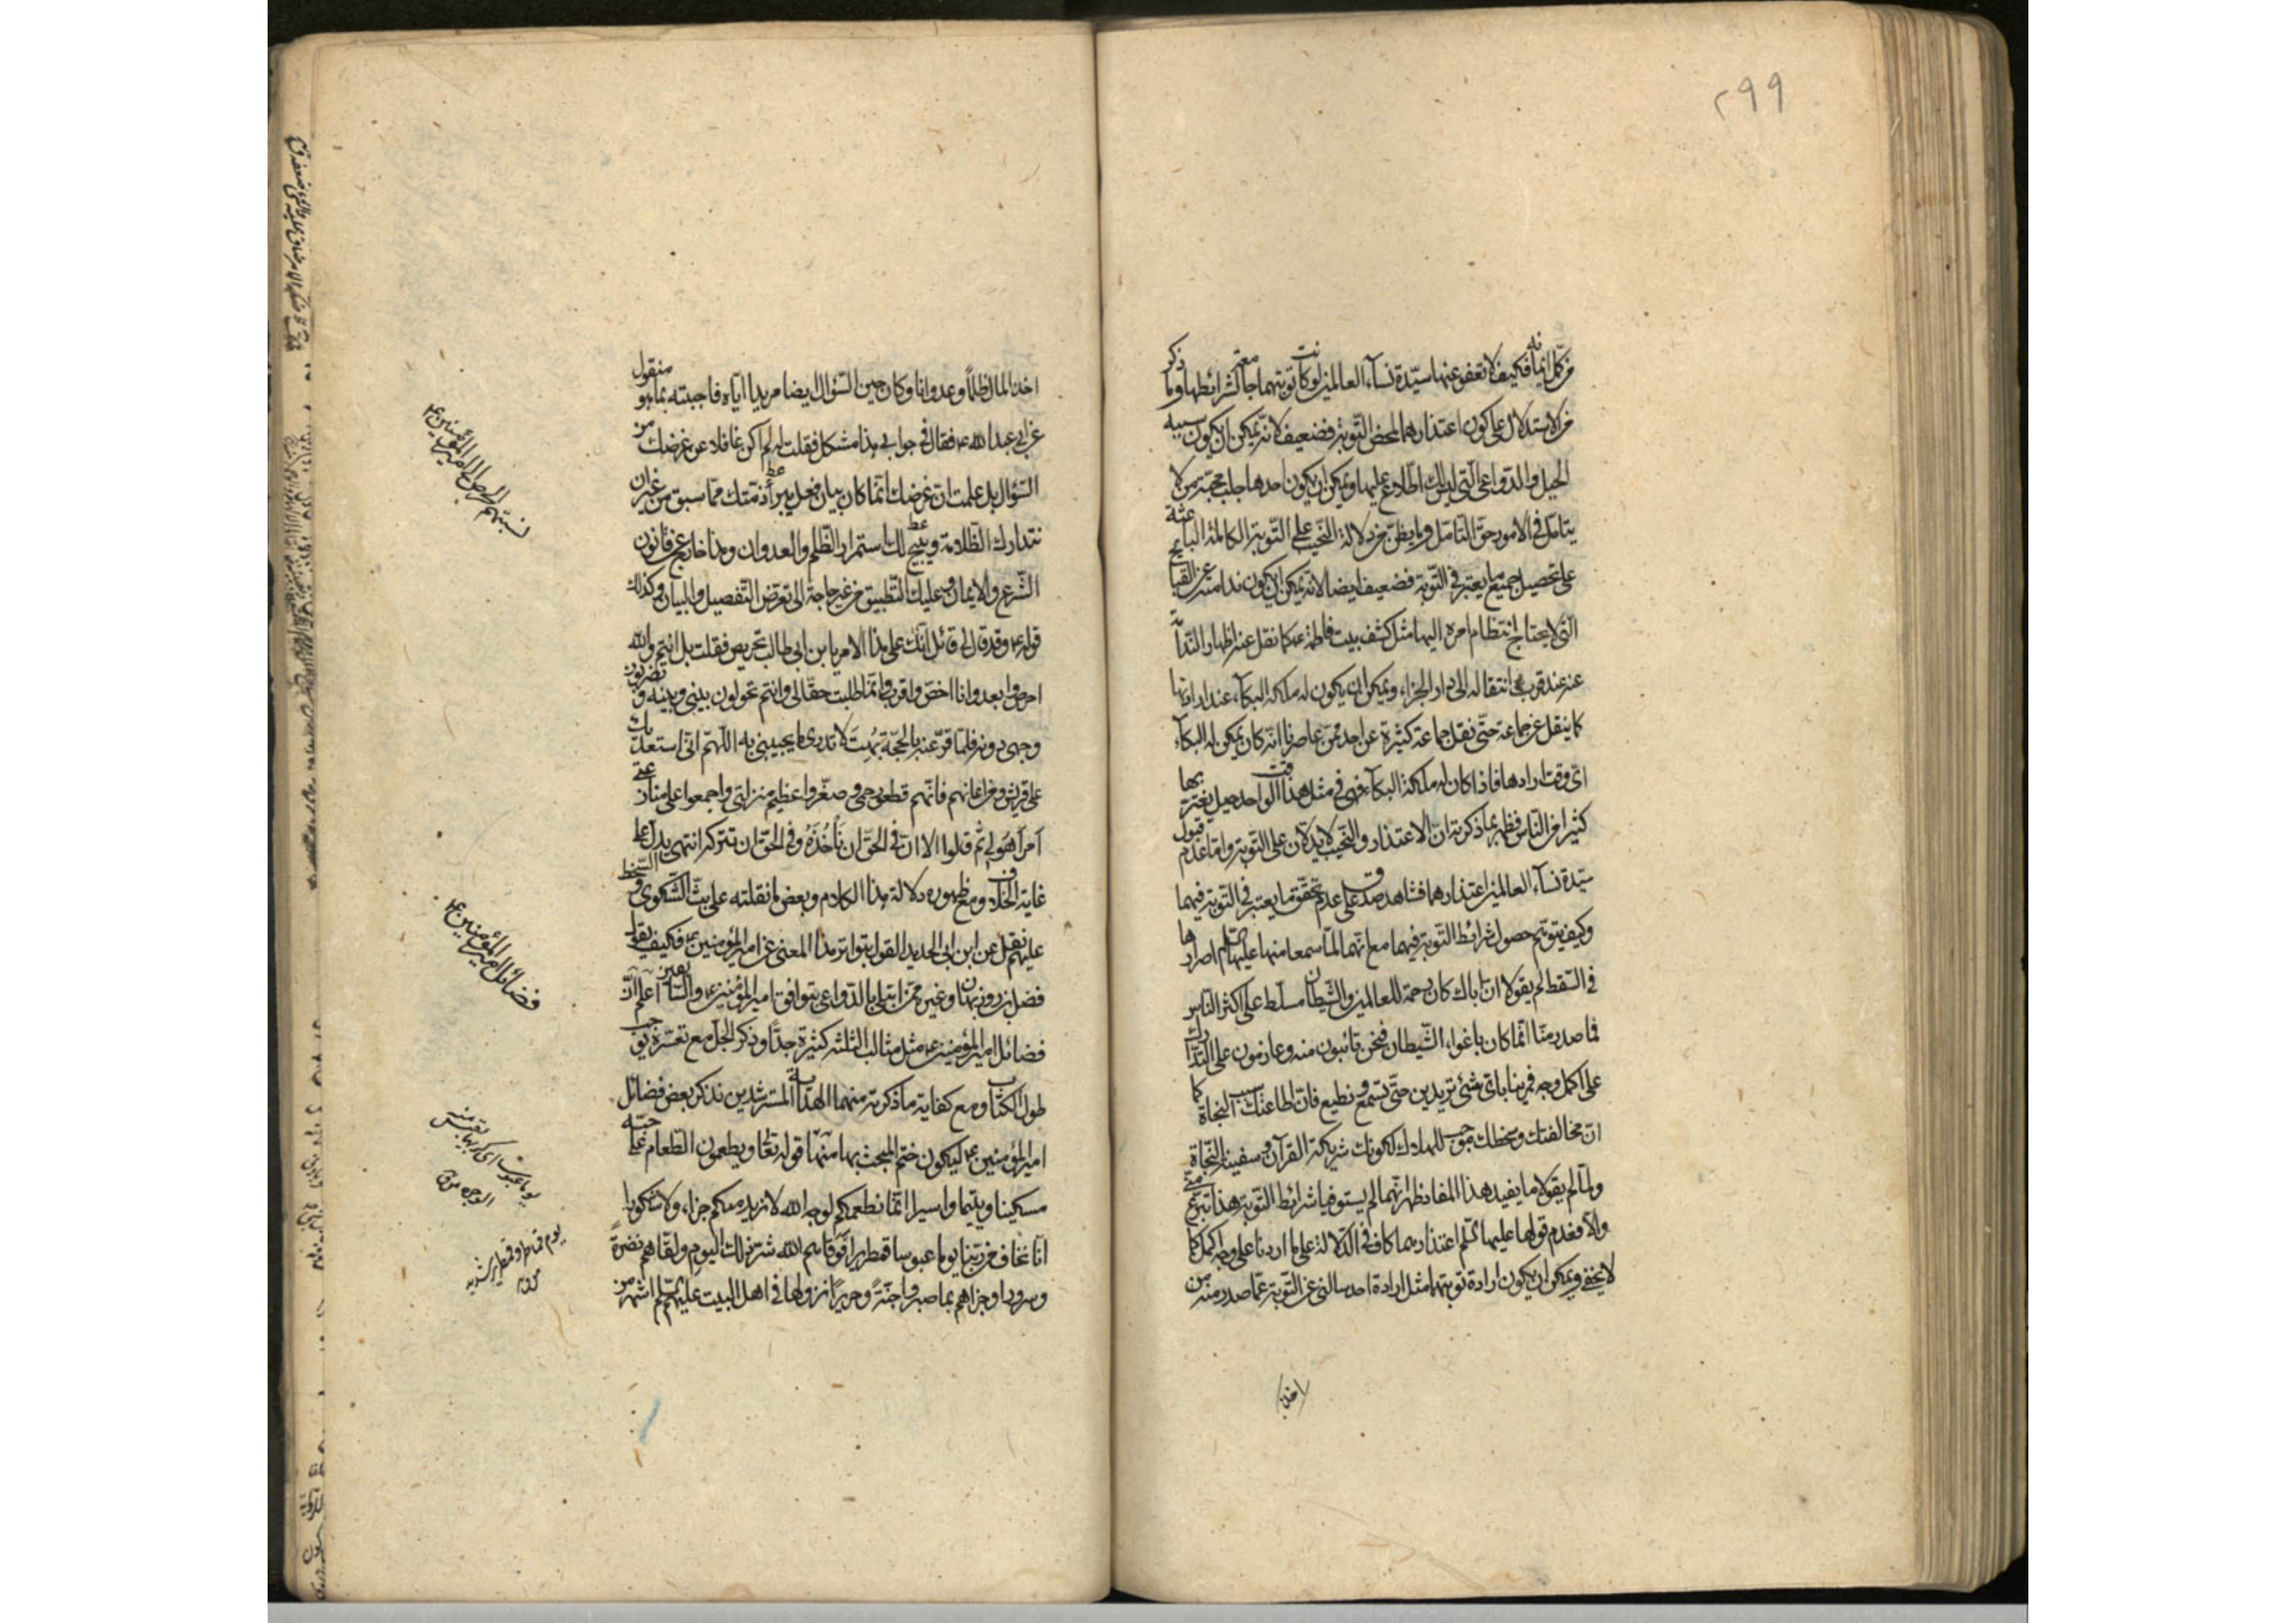 ٢٩٩
من كل ايمانه فكيف لا تعفو عنها سيدة نسآء العالمين لو كانت توبتهما جامعة لشرائطها وما ذكر
من الاستدلال على كون اعتذارهما لمحض التوبة فضعيف لانه يمكن ان يكون سببه
الحيل والدواعى التى ليس لك اطلاع عليها ويمكن ان يكون احدها جلب محبة من لا
يتأمل فى الامور حق التأمل وما يظن من دلالة النحيب على التوبة الكاملة الباعثة
على تحصيل جميع ما يعتبر فى التوبة فضعيف ايضا لانه يمكن ان يكون ندامته عن القبايح
التى لا يحتاج انتظام امره اليها مثل كشف بيت فاطمة ع كما نقل عنه اظهار الندامة
عنه عند قرب انتقاله الى دار الجزاء ويمكن ان يكون له ملكة البكآء عند ارادتها
كما ينقل عن جماعة حتى نقل جماعة كثيرة عن احد ممن عاصرنا انه كان يمكن له البكآء
اى وقت ارادها فاذا كان له ملكة البكآء فهى فى مثل هذا الوقت احد حيل يغتر بها
كثيرا من الناس فظهر بما ذكرته ان الاعتذار والنحيب لا يدلان على التوبة واما عدم قبول
سيدة نسآء العالمين اعتذارهما فشاهد صدق على عدم تحقق ما يعتبر فى التوبة فيهما
وكيف يتوهم حصول شرائط التوبة فيهما مع انهما لما سمعا منها عليها السلم اصرارها
فى السخط لم يقولا ان اباك كان رحمة للعالمين والشيطان مسلط على اكثر الناس
فما صدر منا انما كان باغواء الشيطان فنحن تائبون منه وعازمون على التدارك
على اكمل وجه فمرينا باى شئ تريدين حتى نستمع ونطيع فان اطاعتك سبب النجاة كما
ان مخالفتك وسخطك موجب للهلاك لكونك شريكة القرآن وسفينة النجاة
ولما لم يقولا ما يفيد هذا المفاد ظهر انهما لم يستوفيا شرائط التوبة هذا تبرع منى
والا فعدم قبولها عليها السلم اعتذارهما كاف فى الدلالة على ما اردنا على وجه اكمل كما
لا يخفى ويمكن ان يكون ارادة توبتهما مثل ارادة احد سألنى عن التوبة عما صدر منه من
اخذ
اخذ المال ظلما وعدوانا وكان حين السؤال ايضا مريدا اياه فاجبته بما هو منقول
عن ابى عبد الله ع فقال فى جوابى هذا مشكل فقلت له لم اكن غافلا عن غرضك من
السؤال بل علمت ان غرضك انما كان بيان فعل يبرأ ذمتك مما سبق من غير ان
تتدارك الظلامة ويبيح لك استمرار الظلم والعدوان وهذا خارج عن قانون
الشرع والايمان وعليك التطبيق من غير حاجة الى تعرض التفصيل والبيان وكذلك
قوله ع وقد قال لى قائل انك على هذا الامر يا بن ابى طالب لحريص فقلت بل انتم والله
احرص وابعد وانا اخص واقرب وانما طلبت حقا لى وانتم تحولون بينى وبينه وتضربون
وجهى دونه فلما قرعته بالحجة بهت لا يدرى ما يجيبنى به اللهم انى استعديك
على قريش ومن اعانهم فانهم قطعوا رحمى وصغروا عظيم منزلتى واجمعوا على منازعتى
امرا هو لى ثم قالوا الا ان فى الحق ان نأخذه وفى الحق ان تتركه انتهى يدل على
غاية الخلاف ومع ظهور دلالة هذا الكلام وبعض ما نقلته على بث الشكوى والسخط
عليهم نقل عن ابن ابى الحديد القول بتواتر هذا المعنى عن امير المؤمنين ع فكيف يقول
فضل بن روزبهان وغيره ممن ابتلى بالدواعى بتوافق امير المؤمنين ع والسابقين اعلم ان
فضائل امير المؤمنين ع مثل مثالب الثلثة كثيرة جدا وذكر الجل مع تعسره يوجب
طول الكتاب ومع كفاية ما ذكرته منهما لهداية المسترشدين نذكر بعض فضائل
امير المؤمنين ع ليكون ختم المبحث بها منها قوله تعالى ويطعمون الطعام على حبه
مسكينا ويتيما واسيرا انما نطعمكم لوجه الله لا نريد منكم جزاء ولا شكورا
انا نخاف من ربنا يوما عبوسا قمطريرا فوقاهم الله شر ذلك اليوم ولقاهم نضرة
وسرورا وجزاهم بما صبروا جنة وحريرا نزولها فى اهل البيت عليهم السلم اشهر من
نسبتهم الحرص الى امير المؤمنين ع
فضائل امير المؤمنين ع